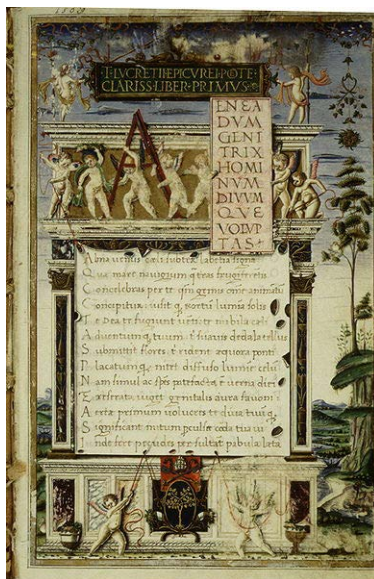 T·LVCRETII·EPICVREI·POTE
CLARISS·LIBER·PRIMVS
A
ENEA
DVM
GENI
TRIX
HOMI
NVM
DIVVM
QVE
VOLVP
TAS
Alma uenus celi subter labentia signa
Que mare nauigerum q terras
Concelebras per te qm genus omne animatu
Concipitur uisit q exortu lumina solis
Te Dea te fugiunt uenti te nubila celi
Aduentum q tuum t suauis dedala tellus
Submittit flores t rident aequora ponti
Placatum q nitet diffuso lumine celu
Nam simul ac spes patefacta e uerna diei
Et reserata uiget genitalis aura fauoni
Aeriae primum uolucres te diua tuu q
Significant initum perculse corda tua ui
Inde fere pecudes persultat pabula laeta